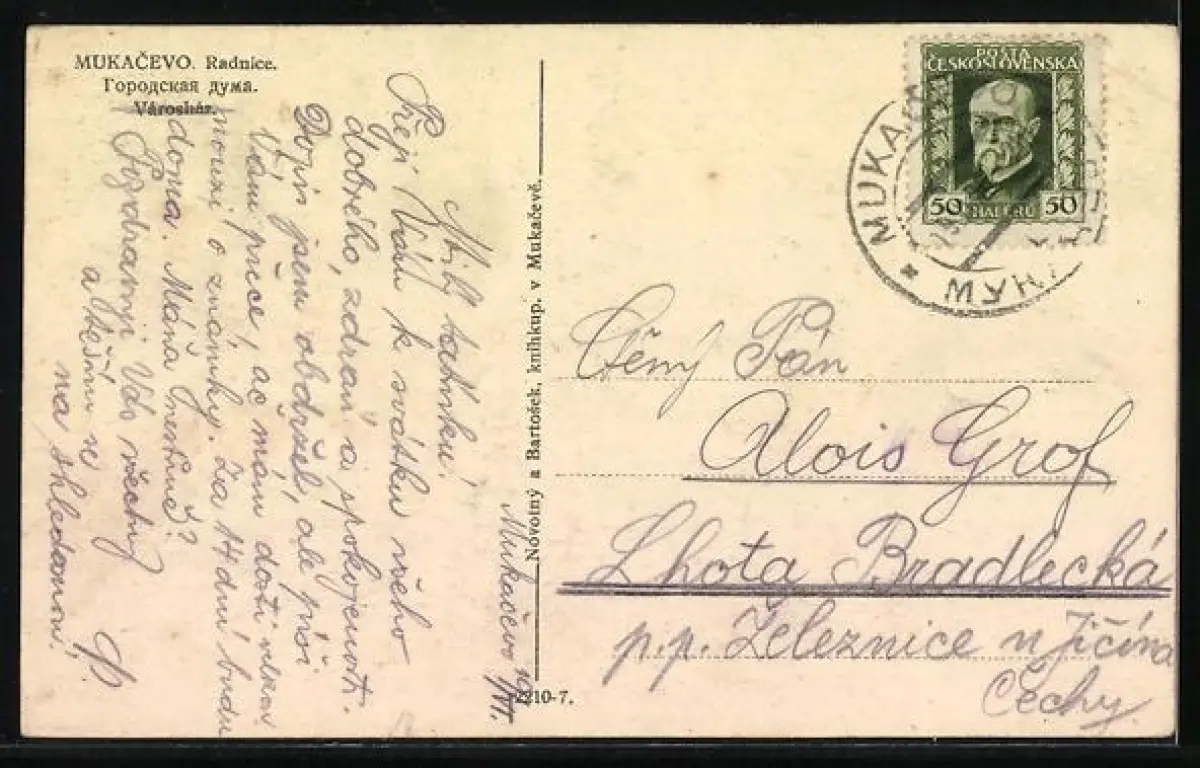 MUKAČEVO. Radnice.
Городская дума.
Városház.
Mukačevo
Milý tatínku!
Přeji Vám k svátku všeho
dobrého, zdraví a spokojenosti.
Dopis jsem obdržel, ale píši
Vám přece, ač mám dosti
nouzi o známky. Za 14 dní budu
doma. Máňa
Pozdravuji Vás všechny
a těším se
na shledanou!
Novotný a Bartošek, knihkup. v Mukačevě.
2210-7.
POŠTA
ČESKOSLOVENSKÁ
50 HALÉŘŮ 50
MUKA
МУК
Ctěný Pán
Alois Grof
Lhota Bradlecká
p.p. Železnice u Jičína
Čechy